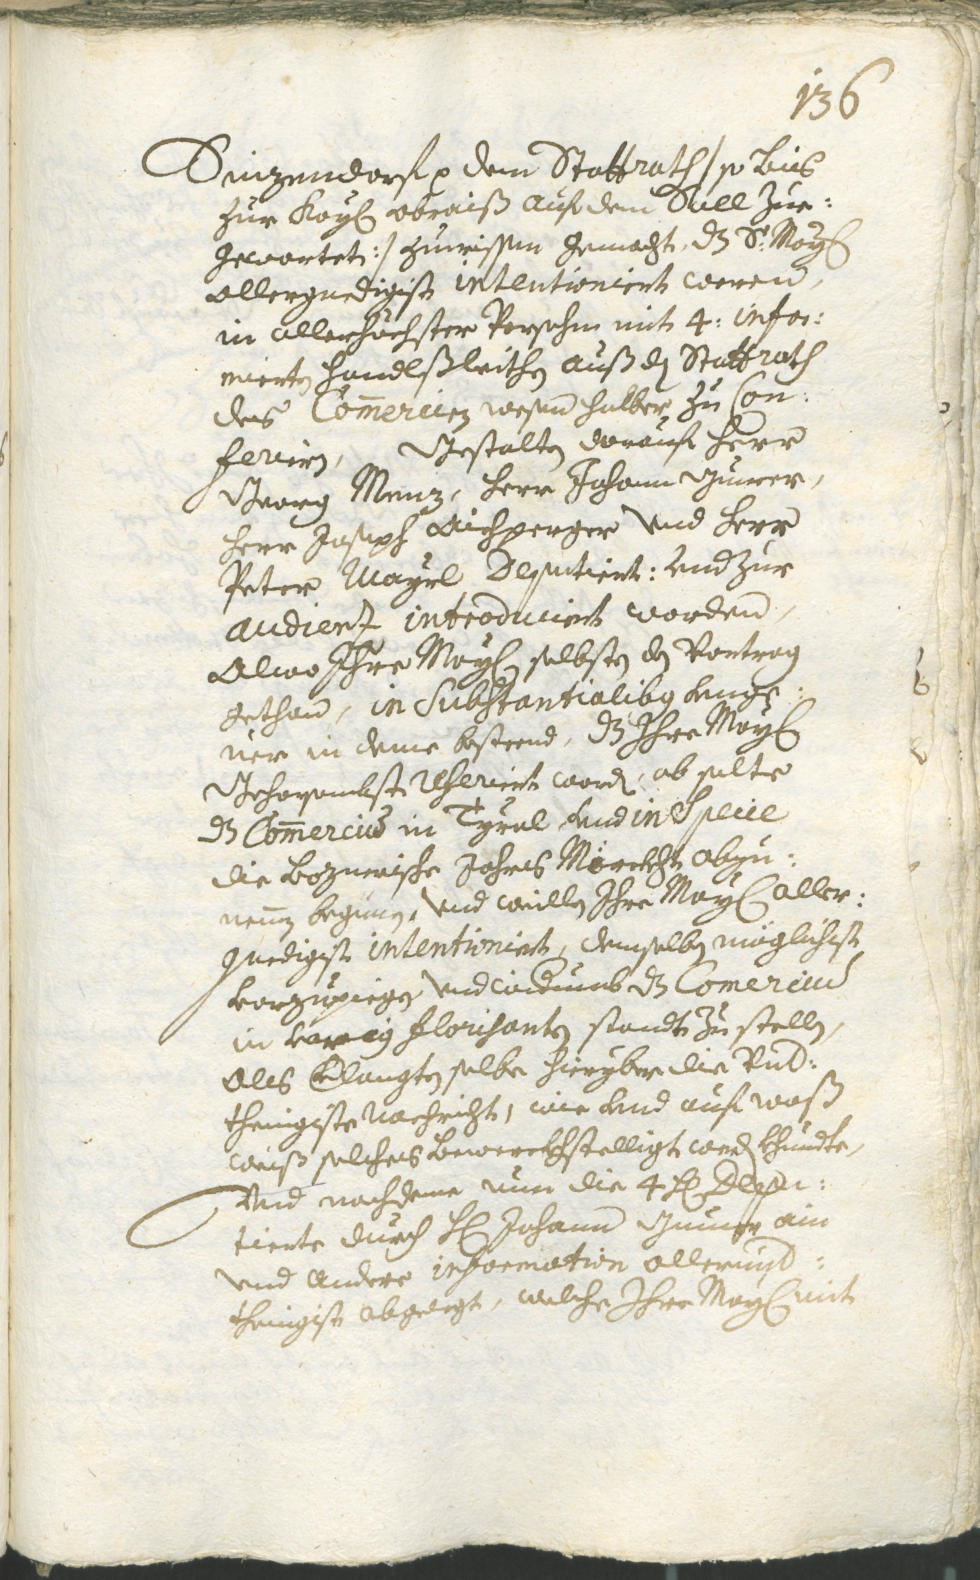 136
Sinzendorf p dem Stattrath /: so biß
zur Kayl: abraiß auf dem Saal zue:
gewartet :/ zuwissen gemacht, dz Sr: Mayl:
allergnedigist intentioniert weren,
in allerhöchster Persohn mit 4: infor:
mierten handlßleithen auß dem Stattrath
des Commercien wesen halber zu Con:
ferirn, Gestalten darauf Herr
Georg Menz, Herr Johann Gumer,
Herr Joseph Aichperger und Herr
Peter Mayrl Deputiert: und zur
audienz introduciert worden,
Alwo Ihre Mayl: selbsten den Vortrag
gethan, in Substantialibus
in deme besteend, dz Ihre Mayl:
Gehorsambst referiert worden, ob solte
dz Commercium in Tyrol und in Specie
die Boznerische Jahrs Märckht abzu:
nemen begunen, und weillen Ihre Mayl: aller:
gnedigist intentioniert, demselben möglichist
vorzupiegen, und widerumb dz Comercium
in vorig florisanten standt zu stellen,
Als verlangten selbe hieryber die Und:
thenigiste nachricht, wie und auf waß
weiß solches bewerckhstelligt werden khundte,
Und nachdeme nun die 4 H: Depu:
tierte durch H: Johann Gumer ain
und andere information allerund:
thenigist abgelegt, welche Ihre Mayl: mit